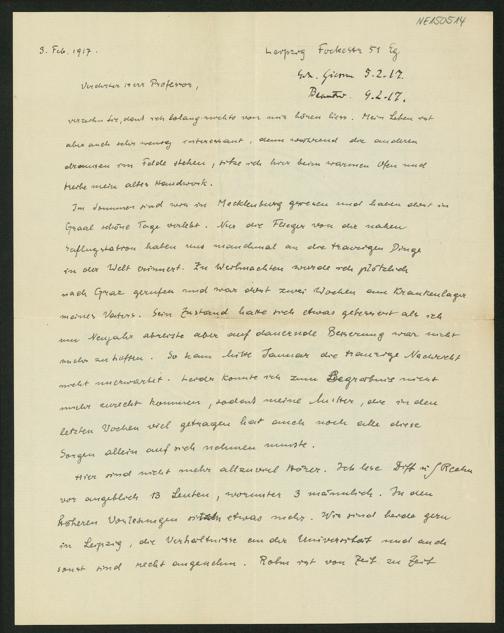 NE150514
3. Feb. 1917.
Leipzig Fockestr 51 Eg
Giessen 5.2.17.
Beantw. 9.2.17.
Verehrter Herr Professor,
verzeihn Sie, dass ich solang nichts von mir hören liess. Mein Leben ist
aber auch sehr wenig interessant, denn während die anderen
draussen im Felde stehen, sitze ich hier beim warmen Ofen und
treibe mein altes Handwerk.
Im Sommer sind wir in Mecklenburg gewesen und haben dort in
Graal schöne Tage verlebt. Nur die Flieger von der nahen
Luftflugstation haben uns manchmal an die traurigen Dinge
in der Welt erinnert. Zu Weihnachten wurde ich plötzlich
nach Graz gerufen und war dort zwei Wochen am Krankenlager
meines Vaters. Sein Zustand hatte sich etwas gebessert als ich
um Neujahr abreiste aber auf dauernde Besserung war nicht
mehr zu hoffen. So kam Mitte Januar die traurige Nachricht
nicht unerwartet. Leider konnte ich zum Begräbnis nicht
mehr zurecht kommen, sodass meine Mutter, die in den
letzten Wochen viel getragen hat auch noch alle diese
Sorgen allein auf sich nehmen musste.
Hier sind nicht mehr allzuviel Hörer. Ich lese Diff u ∫ Rechn
vor angeblich 13 Leuten, worunter 3 männlich. In den
höheren Vorlesungen sitzen etwas mehr. Wir sind beide gern
in Leipzig, die Verhältnisse an der Universität und auch
sonst sind recht angenehm. Rohn ist von Zeit zu Zeit